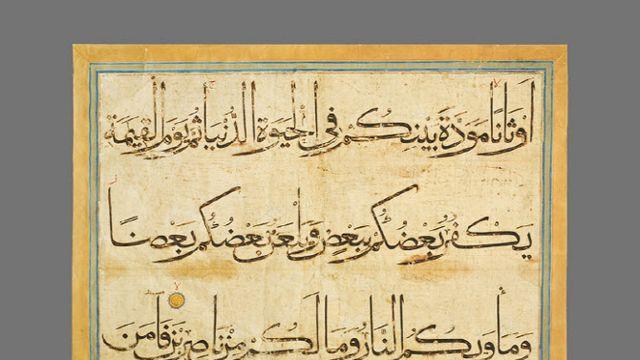 اَوْثَانًا مَوَدَّةَ بَيْنِكُمْ فِي الْحَيٰوةِ الدُّنْيَا ثُمَّ يَوْمَ الْقِيٰمَةِ
يَكْفُرُ بَعْضُكُمْ بِبَعْضٍ وَيَلْعَنُ بَعْضُكُمْ بَعْضًا
وَمَأْوٰىكُمُ النَّارُ وَمَا لَكُمْ مِنْ نَاصِرِينَ فَاٰمَنَ